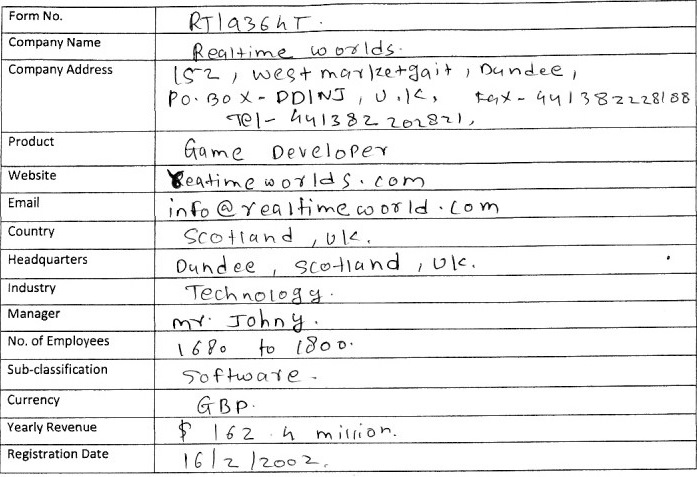 Form No. RT1936hT.
Company Name Realtime worlds.
Company Address 152, west marketgait, Dundee,
PO.BOX-DD1NJ, U.K, Fax-441382228188
Tel-441382 202821,
Product Game Developer
Website Reatimeworlds.com
Email info@realtimeworld.com
Country Scotland, UK.
Headquarters Dundee, Scotland, UK.
Industry Technology.
Manager mr. Johny.
No. of Employees 1680 to 1800.
Sub-classification Software.
Currency GBP.
Yearly Revenue $ 162.4 million.
Registration Date 16/2/2002.